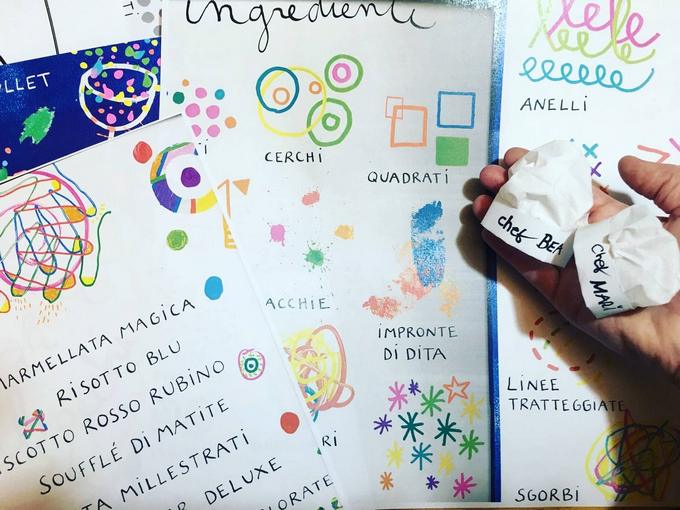 ingredienti
LLET
ANELLI
CERCHI
QUADRATI
chef BEA
chef MARI
IMPRONTE
DI DITA
LINEE
TRATTEGGIATE
SGORBI
MARMELLATA MAGICA
RISOTTO BLU
BISCOTTO ROSSO RUBINO
SOUFFLÉ DI MATITE
TA MILLESTRATI
DELUXE
ACCHIE